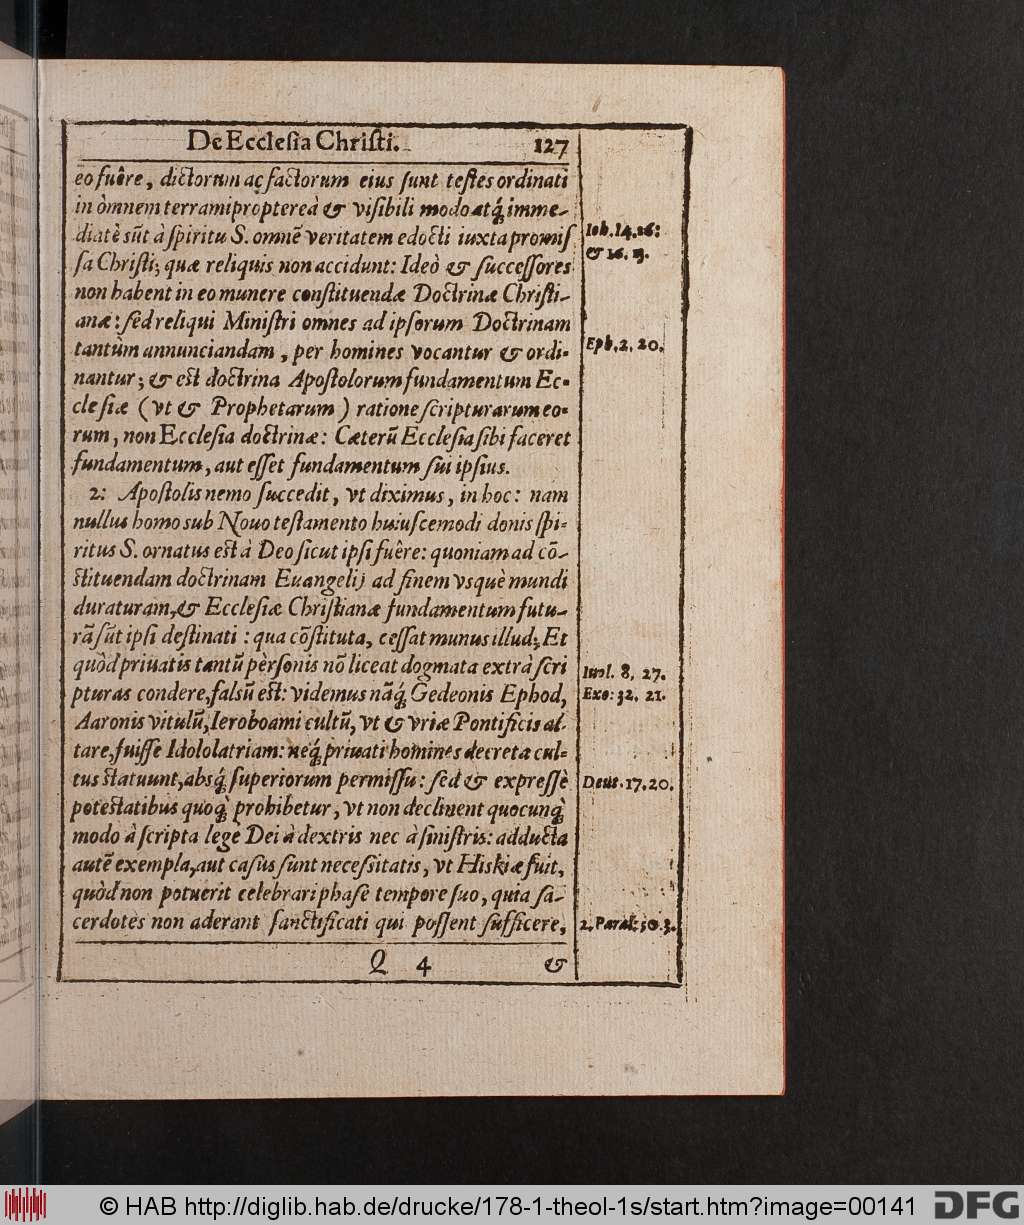 De Ecclesia Christi. 127
eo fuêre, dictorum ac factorum eius sunt testes ordinati
in òmnem terram; proptereà & visibili modo atq́; imme-
diatè sũt à spiritu S. omnẽ veritatem edocti iuxta promis
sa Christi; quæ reliquis non accidunt: Ideò & successores
non habent in eo munere constituendæ Doctrinæ Christi-
anæ: sed reliqui Ministri omnes ad ipsorum Doctrinam
tantùm annunciandam, per homines vocantur & ordi-
nantur; & est doctrina Apostolorum fundamentum Ec-
clesiæ (vt & Prophetarum) ratione scripturarum eo-
rum, non Ecclesia doctrinæ: Cæterũ Ecclesia sibi faceret
fundamentum, aut esset fundamentum sui ipsius.
2: Apostolis nemo succedit, vt diximus, in hoc: nam
nullus homo sub Nouo testamento huiuscemodi donis spi-
ritus S. ornatus est à Deo sicut ipsi fuêre: quoniam ad cõ-
stituendam doctrinam Euangelij ad finem vsquè mundi
duraturam, & Ecclesiæ Christianæ fundamentum futu-
rã sũt ipsi destinati: qua cõstituta, cessat munus illud; Et
quòd priuatis tantũ pèrsonis nõ liceat dogmata extrà scri
pturas condere, falsũ est: videmus nãq́; Gedeonis Ephod,
Aaronis vitulũ, Ieroboami cultũ, vt & vriæ Pontificis al-
tare, fuisse Idololatriam: neq́; priuati homines decreta cul-
tus statuunt, absq́; superiorum permissu: sed & expressè
potestatibus quoq́; prohibetur, vt non declinent quocunq́;
modo à scripta lege Dei à dextris nec à sinistris: adducta
autẽ exempla, aut casus sunt necessitatis, vt Hiskiæ fuit,
quòd non potuerit celebrari phase tempore suo, quia sa-
cerdotes non aderant sanctificati qui possent sufficere,
Q 4 &
Ioh. 14. 26:
& 16. 13.
Eph. 2. 20.
Iud. 8, 27.
Exo: 32. 21.
Deut. 17. 20.
2. Paral: 30. 3.
© HAB http://diglib.hab.de/drucke/178-1-theol-1s/start.htm?image=00141
DFG